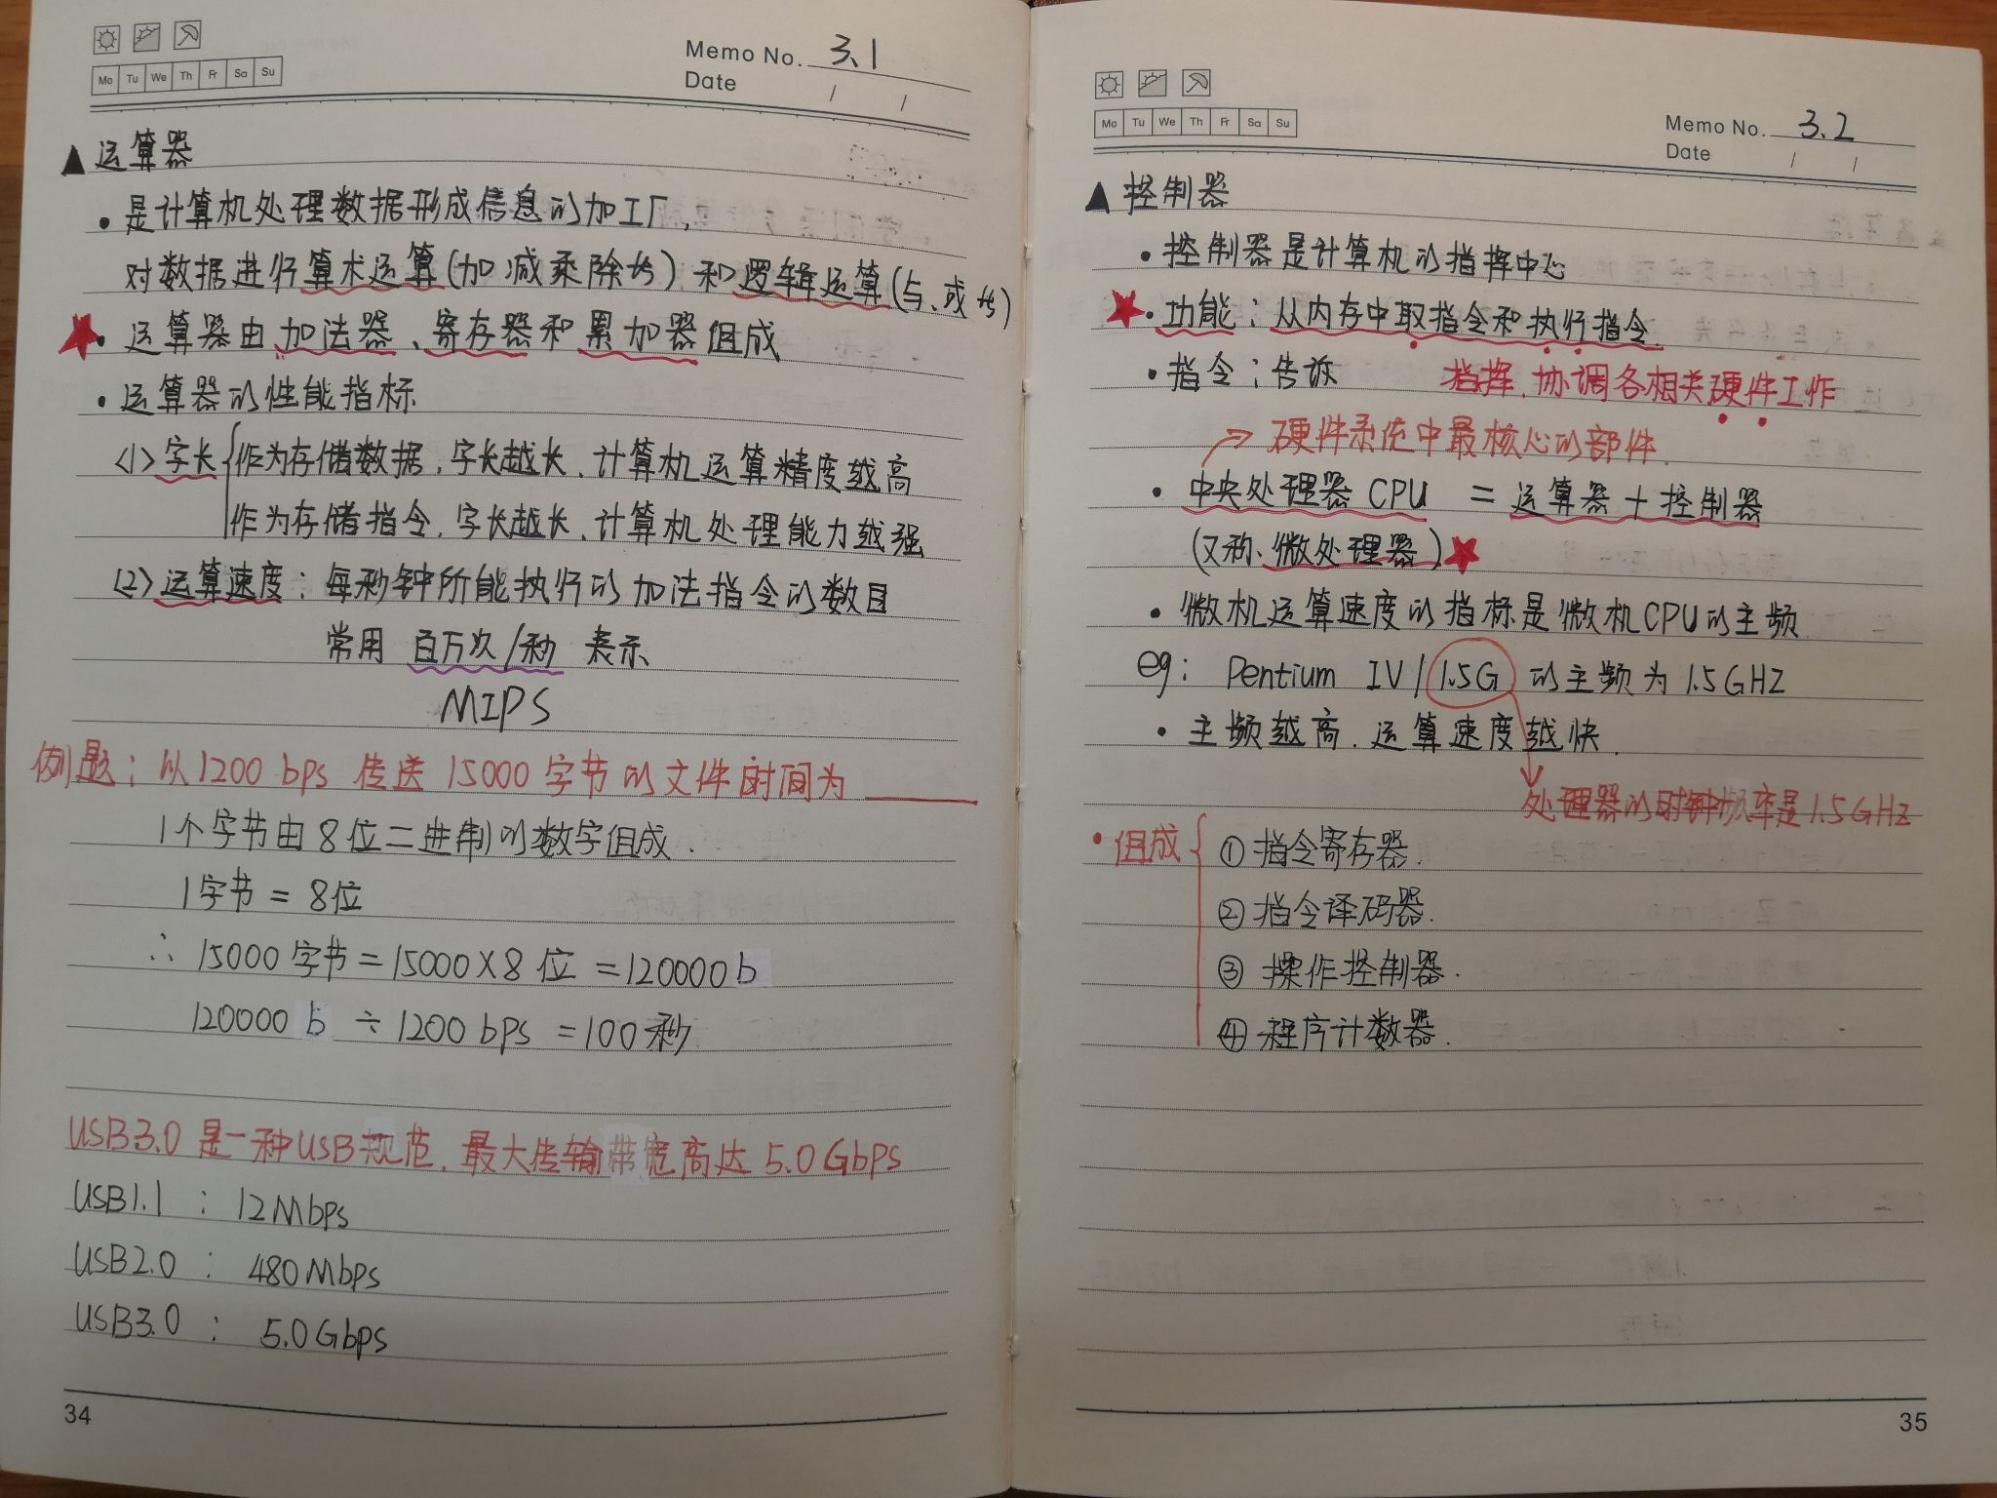 Mo Tu We Th Fr Sa Su
Memo No. 3.1
Date / /
▲运算器
•是计算机处理数据形成信息的加工厂,
对数据进行算术运算(加减乘除等)和逻辑运算(与、或等)
★•运算器由加法器、寄存器和累加器组成
•运算器的性能指标
<1>字长{作为存储数据,字长越长、计算机运算精度越高
作为存储指令,字长越长、计算机处理能力越强
<2>运算速度:每秒钟所能执行的加法指令的数目
常用 百万次/秒 表示
MIPS
例题:以1200 bps 传送 15000 字节的文件时间为______
1个字节由8位二进制的数字组成.
1字节=8位
∴ 15000字节=15000×8位=120000b
120000b ÷1200bps =100秒
USB3.0是一种USB规范,最大传输带宽高达5.0Gbps
USB1.1 : 12Mbps
USB2.0 : 480Mbps
USB3.0 : 5.0Gbps
34
Mo Tu We Th Fr Sa Su
Memo No. 3.2
Date / /
▲控制器
•控制器是计算机的指挥中心
★•功能:从内存中取指令和执行指令.
•指令:告诉 指挥,协调各相关硬件工作
→硬件系统中最核心的部件.
•中央处理器CPU =运算器+控制器
(又称、微处理器)★
•微机运算速度的指标是微机CPU的主频
eg: Pentium IV/1.5G 的主频为1.5GHZ
•主频越高.运算速度越快.
处理器的时钟频率是1.5GHZ
•组成{①指令寄存器.
②指令译码器.
③操作控制器.
④程序计数器.
35